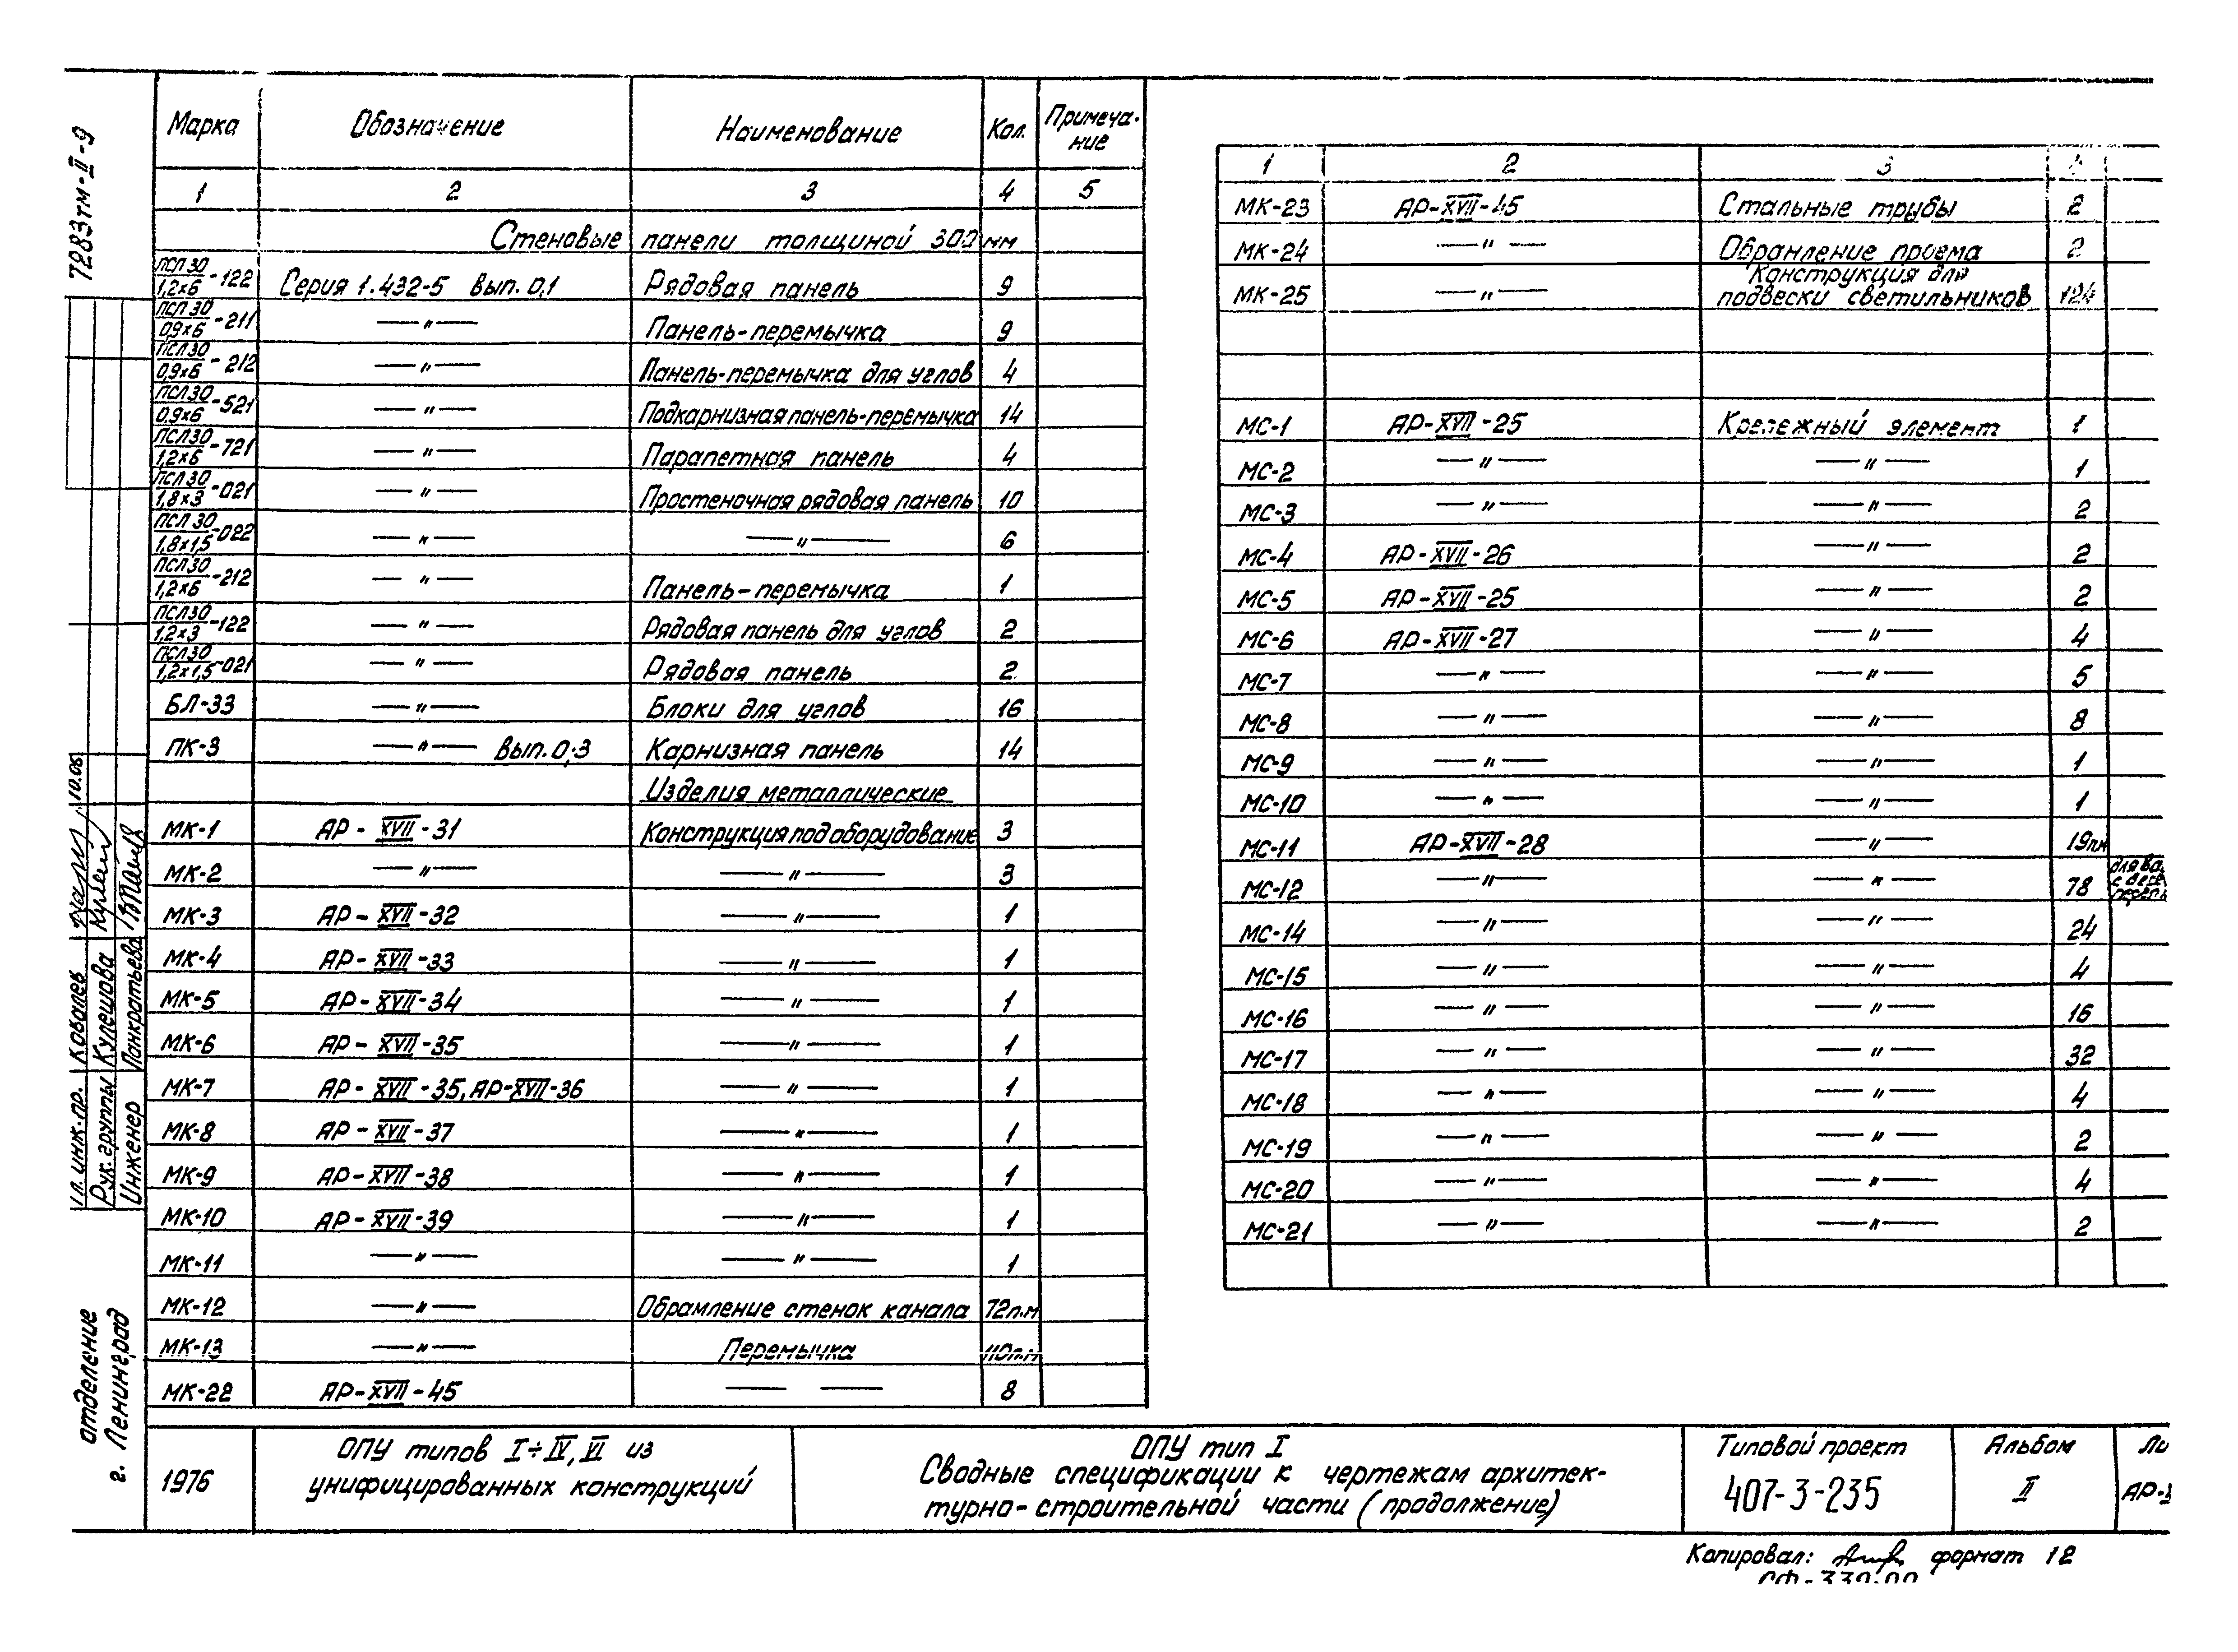 7283тм-II-9
Марка Обозначение Наименование Кол. Примеча-
ние
1 2 3 4 5
Стеновые панели толщиной 300 мм
ПСЛ30/1,2×6-122 Серия 1.432-5 Вып. 0,1 Рядовая панель 9
ПСЛ30/0,9×6-211 —"— Панель-перемычка 9
ПСЛ30/0,9×6-212 —"— Панель-перемычка для углов 4
ПСЛ30/0,9×6-521 —"— Подкарнизная панель-перемычка 14
ПСЛ30/1,2×6-721 —"— Парапетная панель 4
ПСЛ30/1,8×3-021 —"— Простеночная рядовая панель 10
ПСЛ30/1,8×1,5-022 —"— —"— 6
ПСЛ30/1,2×6-212 —"— Панель-перемычка 1
ПСЛ30/1,2×3-122 —"— Рядовая панель для углов 2
ПСЛ30/1,2×1,5-021 —"— Рядовая панель 2
БЛ-33 —"— Блоки для углов 16
ПК-3 —"— Вып. 0;3 Карнизная панель 14
Изделия металлические
МК-1 АР-XVII-31 Конструкция под оборудование 3
МК-2 —"— —"— 3
МК-3 АР-XVII-32 —"— 1
МК-4 АР-XVII-33 —"— 1
МК-5 АР-XVII-34 —"— 1
МК-6 АР-XVII-35 —"— 1
МК-7 АР-XVII-35, АР-XVII-36 —"— 1
МК-8 АР-XVII-37 —"— 1
МК-9 АР-XVII-38 —"— 1
МК-10 АР-XVII-39 —"— 1
МК-11 —"— —"— 1
МК-12 —"— Обрамление стенок канала 72п.м
МК-13 —"— Перемычка 110п.м
МК-22 АР-XVII-45 — — 8
1 2 3 4
МК-23 АР-XVII-45 Стальные трубы 2
МК-24 —"— Обрамление проема 2
МК-25 —"— Конструкция для
подвески светильников 124
МС-1 АР-XVII-25 Крепежный элемент 1
МС-2 —"— —"— 1
МС-3 —"— —"— 2
МС-4 АР-XVII-26 —"— 2
МС-5 АР-XVII-25 —"— 2
МС-6 АР-XVII-27 —"— 4
МС-7 —"— —"— 5
МС-8 —"— —"— 8
МС-9 —"— —"— 1
МС-10 —"— —"— 1
МС-11 АР-XVII-28 —"— 19пм
МС-12 —"— —"— 78
МС-14 —"— —"— 24
МС-15 —"— —"— 4
МС-16 —"— —"— 16
МС-17 —"— —"— 32
МС-18 —"— —"— 4
МС-19 —"— —"— 2
МС-20 —"— —"— 4
МС-21 —"— —"— 2
Гл. инж. пр. Ковалев 10.05
Рук. группы Кулешова
Инженер Панкратьева
отделение
г. Ленинград
1976
ОПУ типов I÷IV, VI из
унифицированных конструкций
ОПУ тип I
Сводные спецификации к чертежам архитек-
турно-строительной части (продолжение)
Типовой проект
407-3-235
Альбом
II
Ли
АР-
Копировал: формат 12